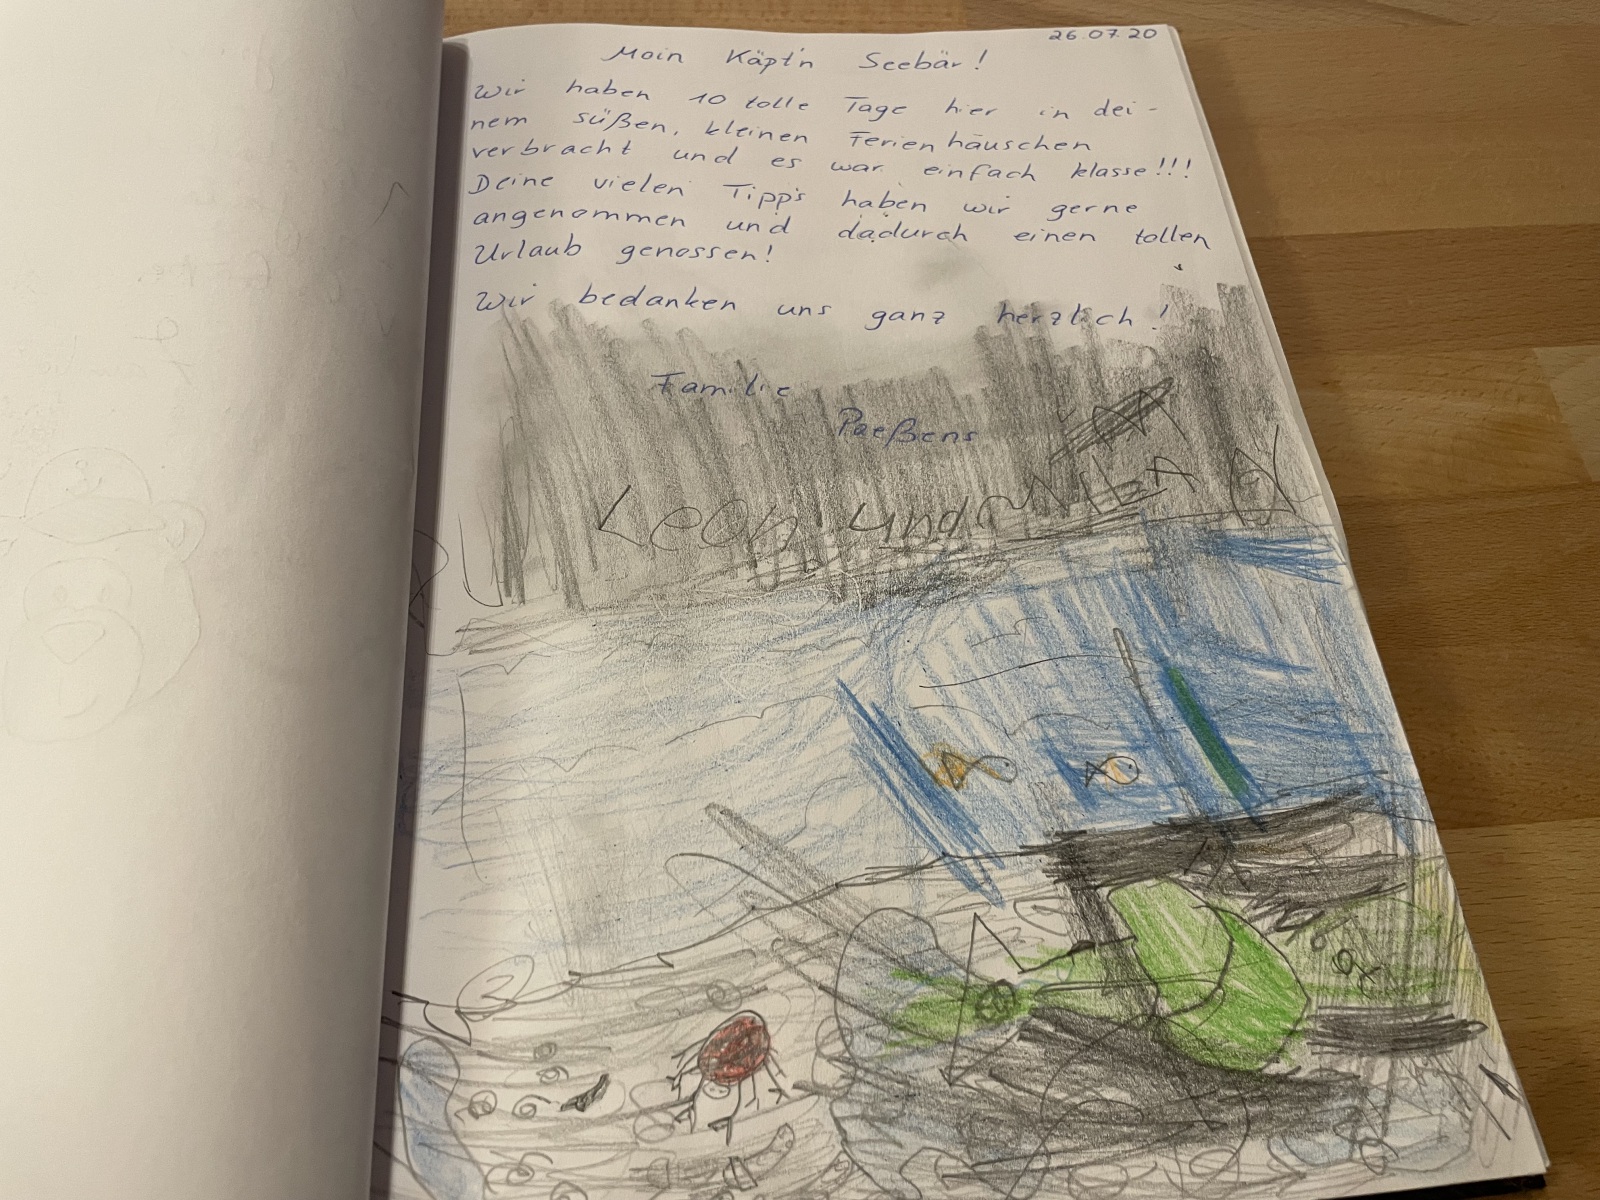 26.07.20
Moin Käpt'n Seebär!
Wir haben 10 tolle Tage hier in dei-
nem süßen, kleinen Ferienhäuschen
verbracht und es war einfach klasse!!!
Deine vielen Tipp's haben wir gerne
angenommen und dadurch einen tollen
Urlaub genossen!
Wir bedanken uns ganz herzlich!
Familie
Paeßens
Leon und MILA